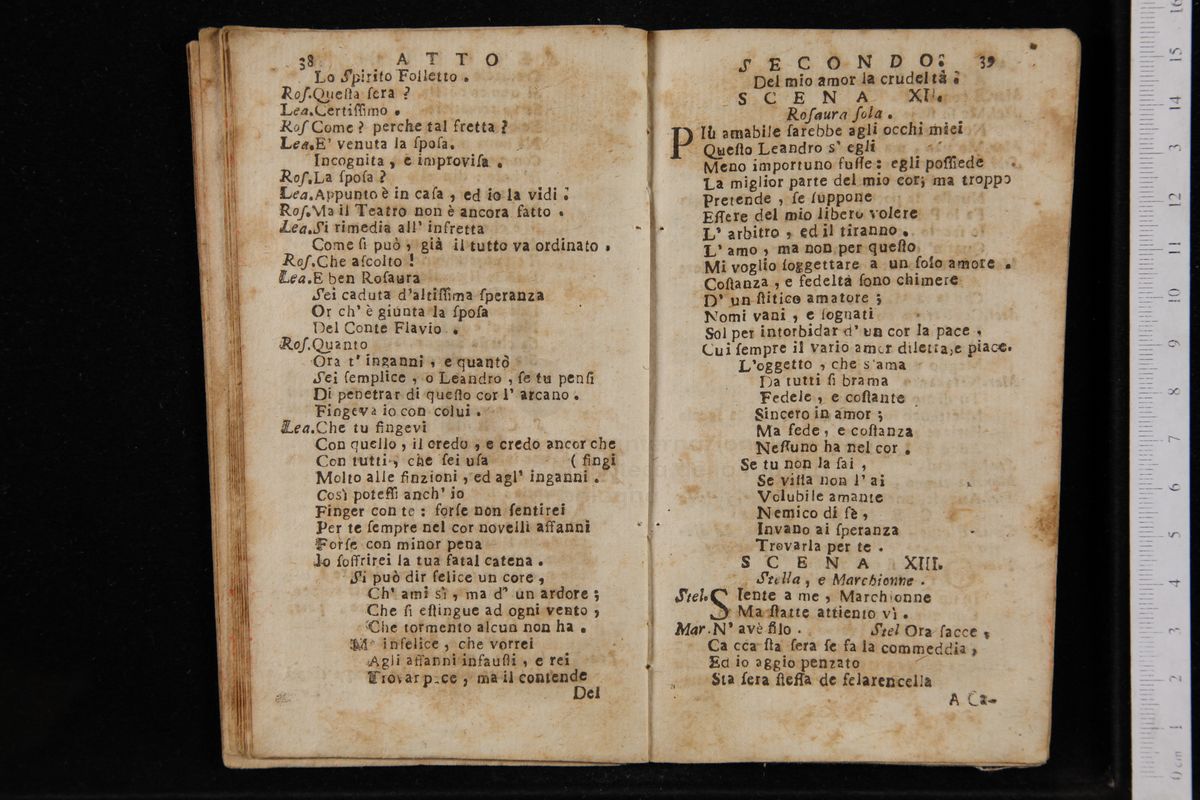 38 ATTO
Lo Spirito Folletto .
Roſ.Queſta ſera ?
Lea.Certiſſimo .
Roſ Come ? perche tal fretta ?
Lea.E' venuta la ſpoſa.
Incognita , e improviſa .
Roſ.La ſpoſa ?
Lea.Appunto è in caſa , ed io la vidi .
Roſ.Ma il Teatro non è ancora fatto .
Lea.Si rimedia all' infretta
Come ſi può , già il tutto va ordinato .
Roſ.Che aſcolto !
Lea.E ben Roſaura
Sei caduta d'altiſſima ſperanza
Or ch' è giunta la ſpoſa
Del Conte Flavio .
Roſ.Quanto
Ora t' inganni , e quantò
Sei ſemplice , o Leandro , ſe tu penſi
Di penetrar di queſto cor l' arcano .
Fingeva io con colui .
Lea.Che tu fingevi
Con quello , il credo , e credo ancor che
Con tutti , che ſei uſa ( fingi
Molto alle finzioni , ed agl' inganni .
Così poteſſi anch' io
Finger con te : forſe non ſentirei
Per te ſempre nel cor novelli affanni
Forſe con minor pena
Io ſoffrirei la tua fatal catena .
Si può dir felice un core ,
Ch' ami sì , ma d' un ardore ;
Che ſi eſtingue ad ogni vento ,
Che tormento alcun non ha .
Ma infelice , che vorrei
Agli affanni infauſti , e rei
Trovar pace , ma il contende
Del
SECONDO. 39
Del mio amor la crudeltà .
SCENA XII.
Roſaura ſola .
PIù amabile ſarebbe agli occhi miei
Queſto Leandro s' egli
Meno importuno fuſſe : egli poſſiede
La miglior parte del mio cor; ma troppo
Pretende , ſe ſuppone
Eſſere del mio libero volere
L' arbitro , ed il tiranno .
L' amo , ma non per queſto
Mi voglio ſoggettare a un ſolo amore .
Coſtanza , e fedeltà ſono chimere
D' un ſtitico amatore ;
Nomi vani , e ſognati
Sol per intorbidar d' un cor la pace ,
Cui ſempre il vario amor diletta,e piace.
L'oggetto , che s'ama
Da tutti ſi brama
Fedele , e coſtante
Sincero in amor ;
Ma fede , e coſtanza
Neſſuno ha nel cor .
Se tu non la ſai ,
Se viſta non l' ai
Volubile amante
Nemico di fè ,
Invano ai ſperanza
Trovarla per te .
SCENA XIII.
Stella , e Marchionne .
Stel.SIente a me , Marchionne
Ma ſtatte attiento vì .
Mar.N' avè filo . Stel Ora ſacce ,
Ca cca ſta ſera ſe fa la commeddia ,
Ed io aggio penzato
Sta ſera ſteſſa de felarencella
A Ca-